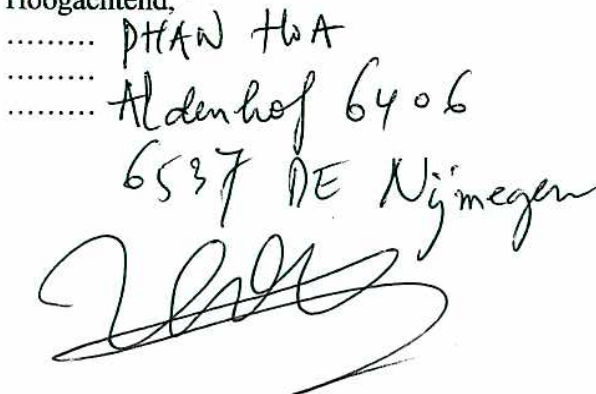 Hoogachtend,
......... PHAN HOA
.........
......... Aldenhof 6406
6537 DE Nijmegen